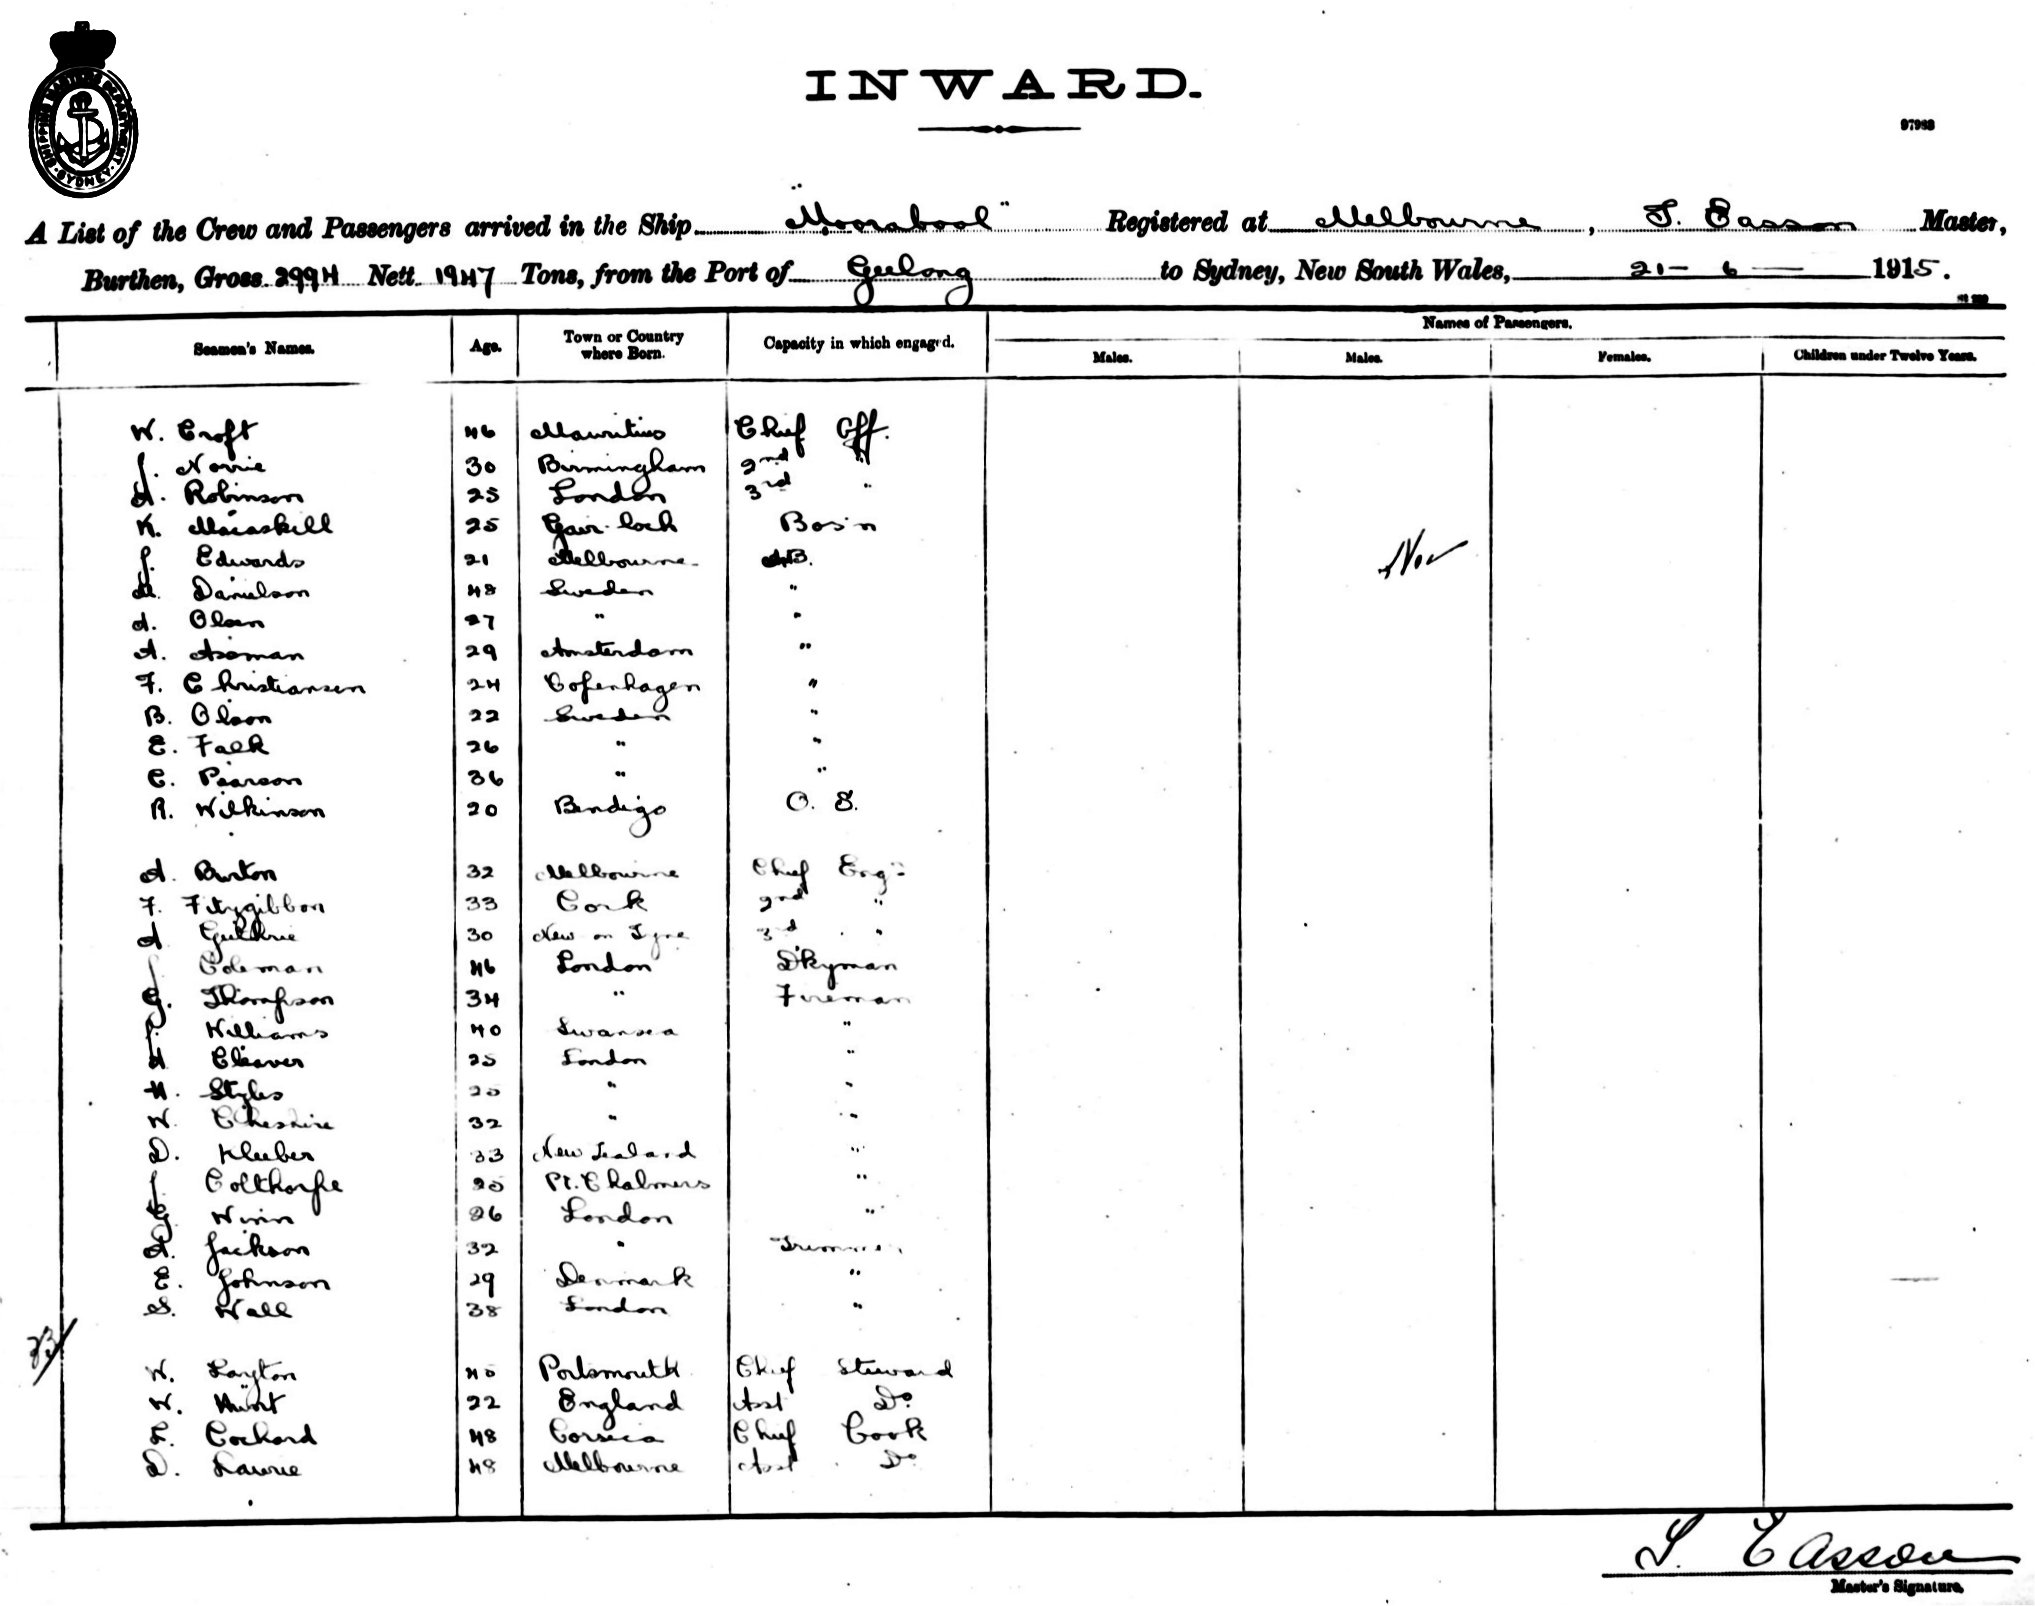 SHIPPING MASTERS DEPARTMENT. SYDNEY.
INWARD.
97983
A List of the Crew and Passengers arrived in the Ship "Moorabool" Registered at Melbourne, T. Easson Master,
Burthen, Gross 2994 Nett 1947 Tons, from the Port of Geelong to Sydney, New South Wales, 21-6-1915.
Names of Passengers.
Seamen's Names. Age. Town or Country where Born. Capacity in which engaged. Males. Males. Females. Children under Twelve Years.
W. Croft 46 Mauritius Chief Off.
J. Norrie 30 Birmingham 2nd "
A. Robinson 25 London 3rd "
K. Macaskill 25 Gair-loch Bos'n
J. Edwards 21 Melbourne A.B.
Danielson 48 Sweden "
A. Olsen 27 " "
A. Assman 29 Amsterdam "
F. Christiansen 24 Copenhagen "
B. Olson 22 Sweden "
E. Falk 26 " "
C. Pearson 36 " "
R. Wilkinson 20 Bendigo O. S.
A. Burton 32 Melbourne Chief Engr
F. Fitzgibbon 33 Cork 2nd "
A Guthrie 30 New on Tyne 3d "
J Coleman 46 London D'kyman
G. Thompson 34 " Fireman
J. Williams 40 Swansea "
A Cleaver 25 London "
H. Styles 25 " "
W. Cheshire 32 " "
D. Kleeber 33 New Zealand "
J Colthorpe 25 Pt. Chalmers "
G Winn 26 London "
A. Jackson 32 " Trimmer
E. Johnson 29 Denmark "
S. Wall 38 London "
W. Layton 40 Portsmouth Chief Steward
W. Hunt 22 England Asst Do
L. Cockard 48 Corsica Chief Cook
D. Laurie 48 Melbourne Asst Do
T. Easson
Master's Signature.